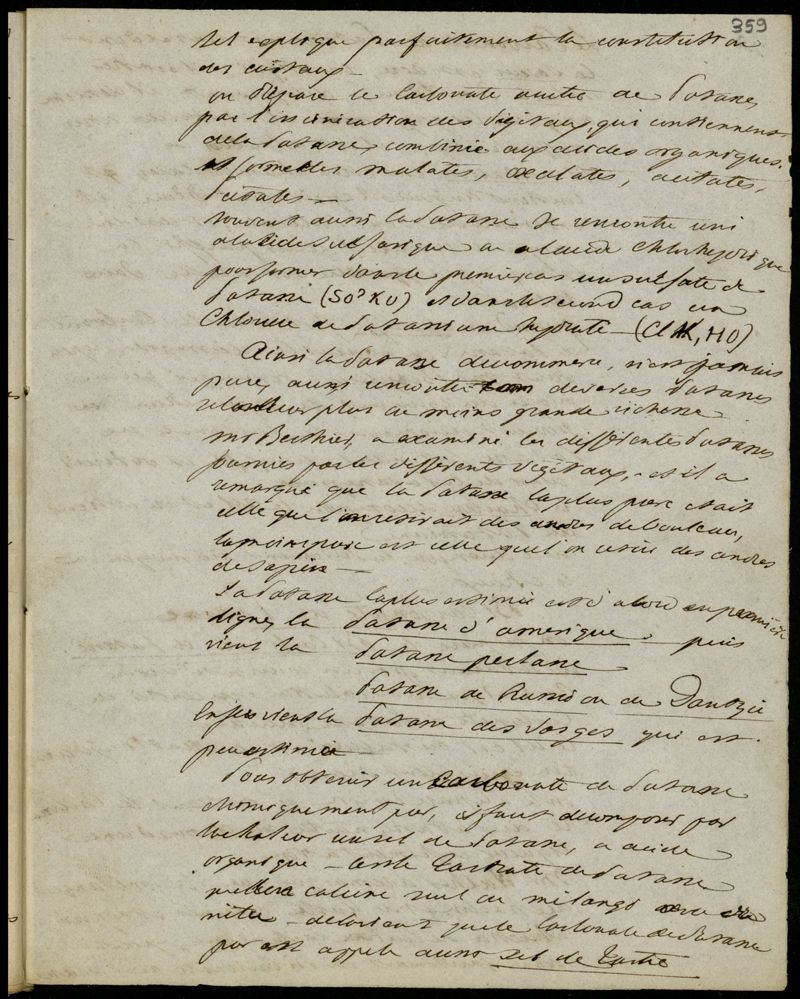 359
sel explique parfaitement la constitution
des cristaux —
on prépare le Carbonate neutre de potasse,
par l'incinération des végétaux, qui contiennent
de la potasse combinée aux acides organiques,
et forme des malates, oxalates, acétates,
citrates —
souvent aussi la potasse se rencontre uni
a l'acide sulfurique ou a l'acide Chlorhydrique
pour former dans le premier cas un sulfate de
potasse (SO³ KO) et dans le second cas un
Chlorure de potassium hydraté — (Cl K, HO)
Ainsi la potasse du commerce, n'est jamais
pure, aussi rencontre-t-on diverses potasses
selon leur plus ou moins grande richesse
mr Berthier, a examiné les différentes potasses
fournies par les différents végétaux, et il a
remarqué que la potasse la plus pure était
celle que l'on retirait des cendres de bouleau,
la moins pure est celle que l'on retire des cendres
de sapin —
La potasse la plus estimée est d'abord en première
ligne, la potasse d'amérique, puis
vient la potasse perlasse
potasse de Russie ou de Dantzig
Enfin vient la potasse des Vosges qui est
peu estimée
Pour obtenir un Carbonate de potasse
chimiquement pur, il faut decomposer par
la chaleur un sel de potasse, a acide
organique — c'est le Tartrate de potasse
que l'on calcine seul ou mélangé avec du
nitre — de la vient que le Carbonate de potasse
pur est appelé aussi sel de Tartre